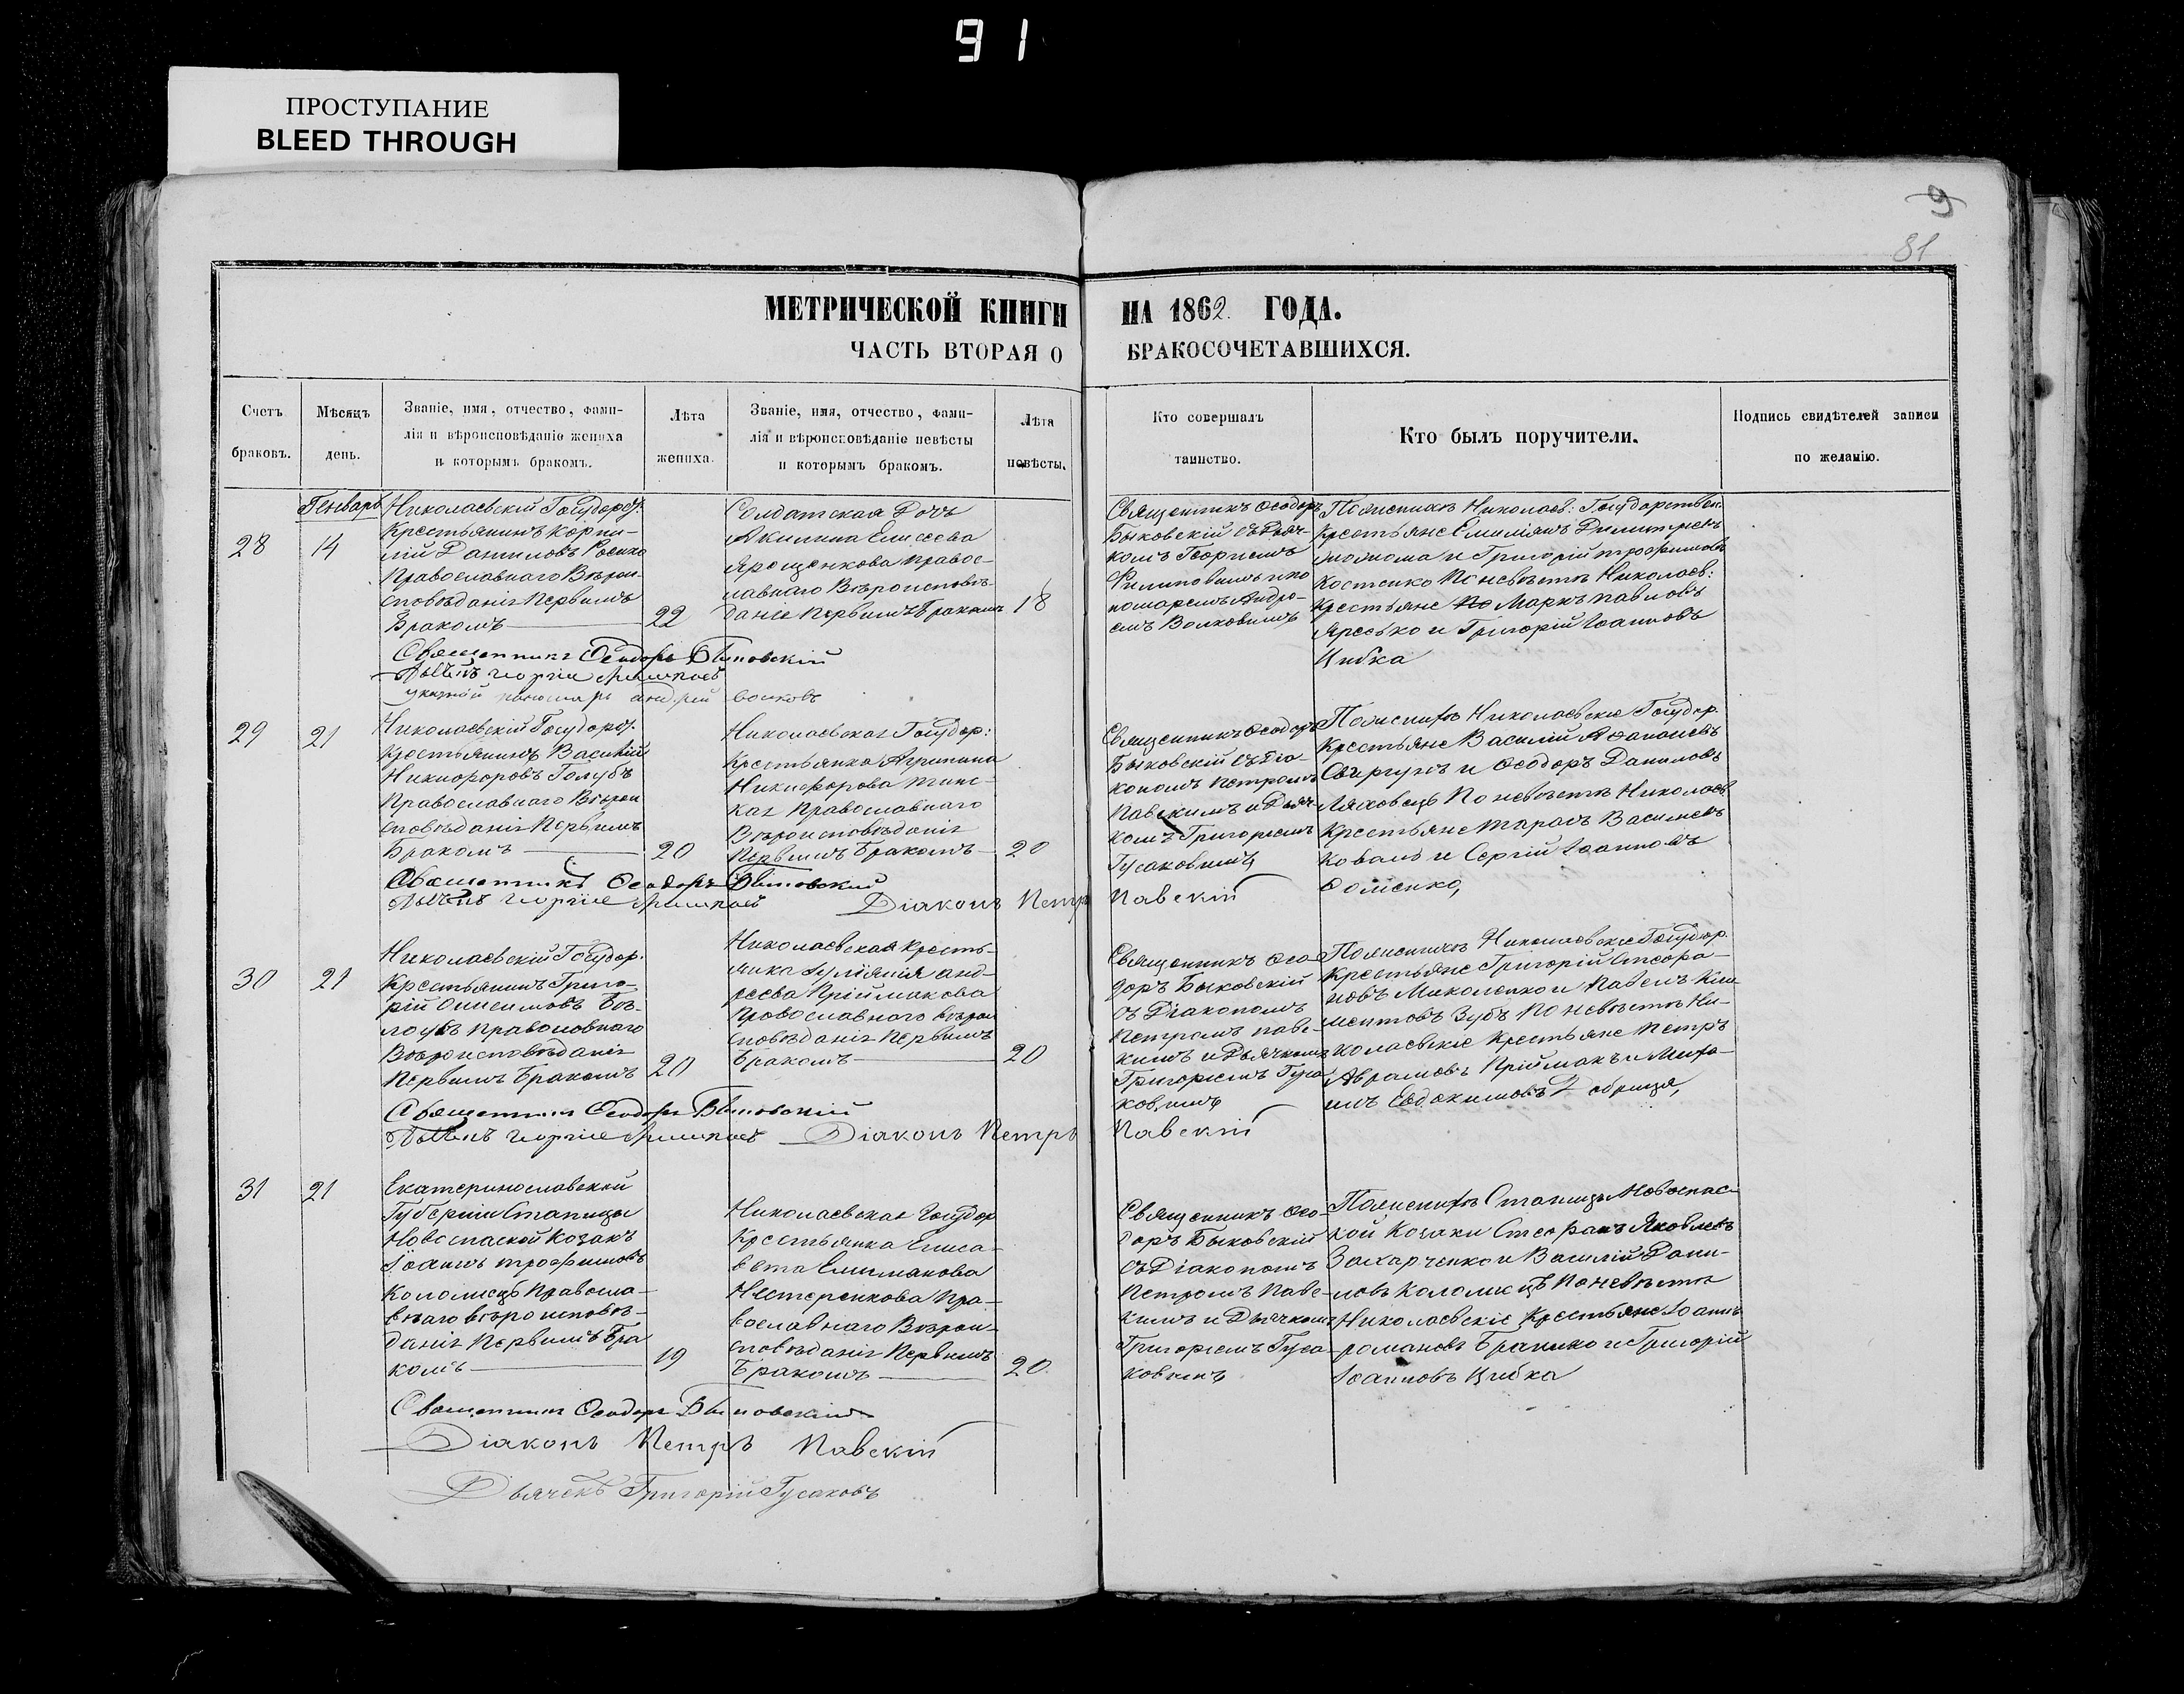 91
ПРОСТУПАНИЕ
BLEED THROUGH
9
81
МЕТРИЧЕСКОЙ КНИГИ НА 1862. ГОДА.
ЧАСТЬ ВТОРАЯ О БРАКОСОЧЕТАВШИХСЯ.
Счетъ
браковъ.
Мѣсяцъ
день.
Званіе, имя, отчество, фами-
лія и вѣроисповѣданіе жениха
и которымъ бракомъ.
Лѣта
жениха.
Званіе, имя, отчество, фами-
лія и вѣроисповѣданіе невѣсты
и которымъ бракомъ.
Лѣта
невѣсты.
Кто совершалъ
таинство.
Кто былъ поручители.
Подпись свидѣтелей записи
по желанію.
Генварь
28
14
Николаевскій Государст.
Крестьянинъ Корни-
лій Даниловъ
Православнаго Вѣрои-
сповѣданія Первымъ
Бракомъ
22
Солдатская Дочь
Акилина Елисеева
Ярещенкова правос-
лавнаго Вѣроисповѣ-
даніе Первымъ Бракомъ
18
Священникъ Ѳеодоръ
Быковскій съ Дьяч-
комъ Георгіемъ
пономаремъ Андре-
емъ Волковымъ
По женихѣ Николаев: Государствен.
Крестьяне Емиліянъ Димитріевъ
и Григорій Трофимовъ
Костенко По невѣстѣ Николаев:
Крестьяне Маркъ Павловъ
Яресько и Григорій Іоанновъ
Цибка
Священникъ Ѳеодоръ Быковскій
указной пономарь андрей волковъ
29
21
Николаевскій Государст.
Крестьянинъ Василій
Никифоровъ Голубъ
Православнаго Вѣрои
сповѣданія Первымъ
Бракомъ
20
Николаевская Государ:
Крестьянка Агрипина
Никифорова
Православнаго
Вѣроисповѣданія
Первымъ Бракомъ
20
Священникъ Ѳеодоръ
Быковскій съ Діа-
кономъ Петромъ
Павскимъ и Дьяч-
комъ Григоріемъ
Гусаковымъ
По женихѣ Николаевскіе Государ.
Крестьяне Василій Аѳанасіевъ
Свиргунъ и Ѳеодоръ Даниловъ
Ляховецъ По невѣстѣ Николаев.
Крестьяне Тарасъ Василіевъ
Коваль и Сергій Іоанновъ
Ѳоменко,
Священникъ Ѳеодоръ Быковскій
Діаконъ Петръ Павскій
30
21
Николаевскій Государ.
Крестьянинъ Григо-
рій Онисимовъ Без-
Православнаго
Вѣроисповѣданія
Первымъ Бракомъ
20
Николаевская Кресть-
янка Іуліянія Анд-
реева Пріймакова
Православнаго Вѣрои
сповѣданія Первымъ
Бракомъ
20
Священникъ Ѳео-
доръ Быковскій
съ Діакономъ
Петромъ Павс-
кимъ и Дьячкомъ
Григоріемъ Гуса
ковымъ
По женихѣ Николаевскіе Государ.
Крестьяне Григорій Стефа-
новъ Миколенко и Павелъ Кли-
ментовъ Зубъ По невѣстѣ Ни-
колаевскіе Крестьяне Петръ
Аврамовъ Пріймакъ и Миха-
илъ Евдокимовъ
Священникъ Ѳеодоръ Быковскій
Діаконъ Петръ Павскій
31
21
Екатеринославской
Губерніи Станицы
Новоспаской Козакъ
Іоаннъ Трофимовъ
Коломіецъ Правосла-
внаго вѣроисповѣ-
данія Первымъ Бра
комъ
19
Николаевская Государ
Крестьянка Елиса-
вета
Нестеренкова Пра-
вославнаго Вѣрои-
сповѣданія Первымъ
Бракомъ
20
Священникъ Ѳео-
доръ Быковскій
съ Діакономъ
Петромъ Павс-
кимъ и Дьячкомъ
Григоріемъ Гуса
ковымъ
По женихѣ Станицы Новоспас-
кой Козаки Стефанъ Яковлевъ
Захарченко и Василій Дани-
ловъ Коломіецъ По невѣстѣ
Николаевскіе Крестьяне Іоаннъ
Романовъ и Григорій
Іоанновъ Цибка
Священникъ Ѳеодоръ Быковскій
Діаконъ Петръ Павскій
Дьячекъ Григорій Гусаковъ